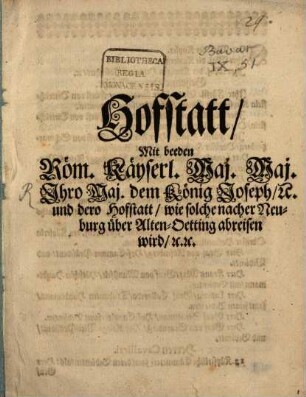 29.
Bavar.
IX, 51
BIBLIOTHECA
REGIA
MONACENSIS.
Hofstatt/
Mit beeden
Röm. Käyserl. Maj. Maj.
Ihro Maj. dem König Joseph/ꝛc.
und dero Hofstatt / wie solche nacher Neu-
burg über Alten-Oetting abreisen
wird/ ꝛc. ꝛc.